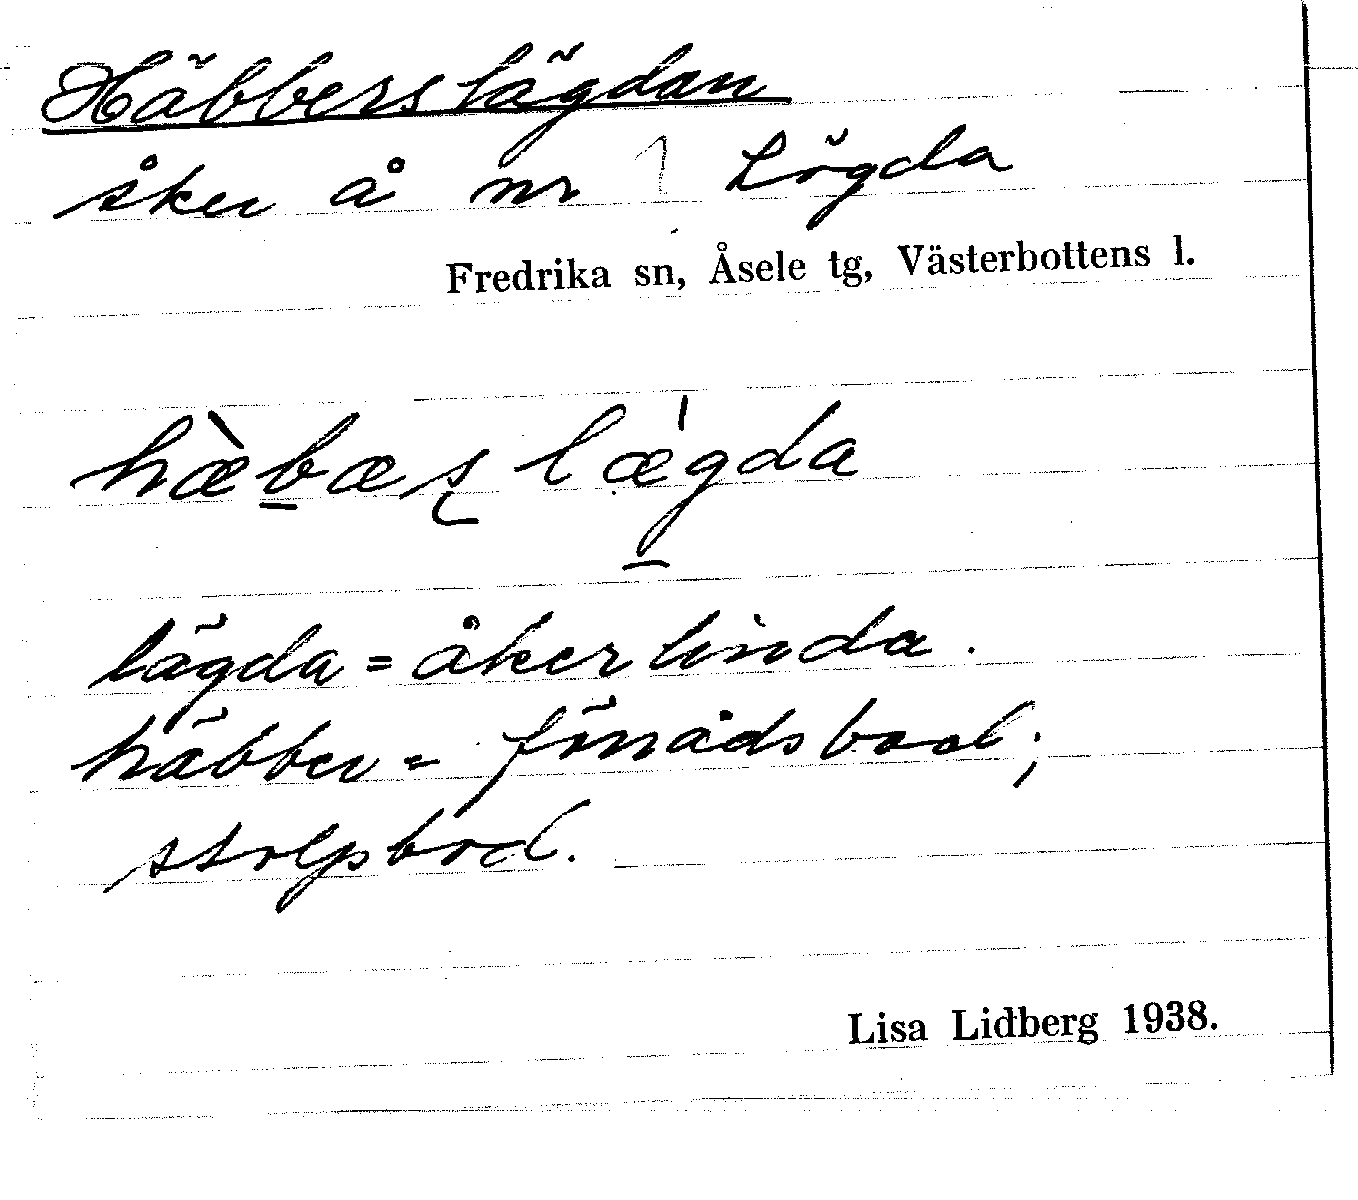 Häbberslägdan
åker å nr 1 Lögda
Fredrika sn, Åsele tg, Västerbottens l.
hæ̀b̲æʂ lǽg̲da
lägda = åkerlinda.
häbber = förrådsbod;
stolpbod.
Lisa Lidberg 1938.